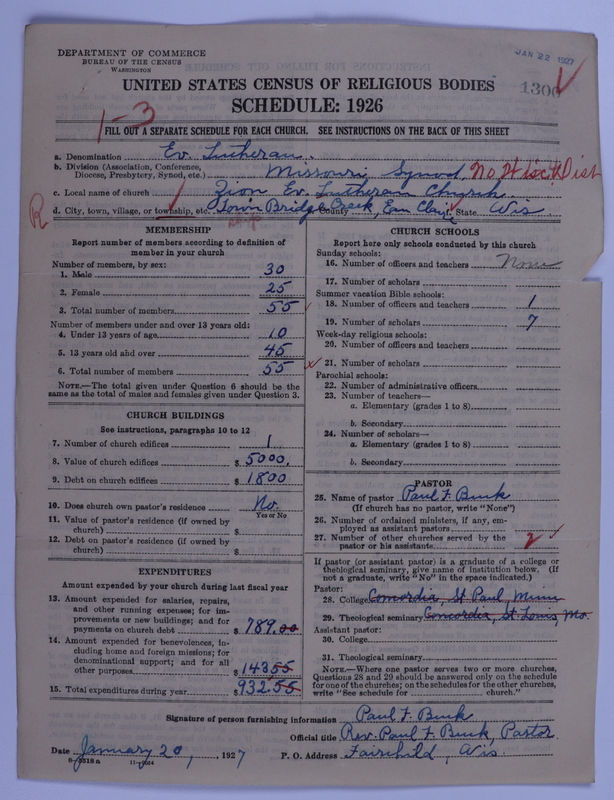 DEPARTMENT OF COMMERCE
BUREAU OF THE CENSUS
WASHINGTON
JAN 22 1927
1300
UNITED STATES CENSUS OF RELIGIOUS BODIES
SCHEDULE: 1926
1-3
FILL OUT A SEPARATE SCHEDULE FOR EACH CHURCH. SEE INSTRUCTIONS ON THE BACK OF THIS SHEET
a. Denomination Ev. Lutheran.
b. Division (Association, Conference, Diocese, Presbytery, Synod, etc.) Missouri Synod, No. Wisc. Dist
c. Local name of church Zion Ev. Lutheran Church
R
d. City, town, village, or township, etc. Town Bridge Creek, County Eau Claire State Wis
MEMBERSHIP
Report number of members according to definition of member in your church
Number of members, by sex:
1. Male 30
2. Female 25
3. Total number of members 55
Number of members under and over 13 years old:
4. Under 13 years of age 10
5. 13 years old and over 45
6. Total number of members 55
NOTE.—The total given under Question 6 should be the same as the total of males and females given under Question 3.
CHURCH BUILDINGS
See instructions, paragraphs 10 to 12
7. Number of church edifices 1
8. Value of church edifices $ 5000.
9. Debt on church edifices $ 1800
10. Does church own pastor's residence No.
Yes or No
11. Value of pastor's residence (if owned by church) $
12. Debt on pastor's residence (if owned by church) $
EXPENDITURES
Amount expended by your church during last fiscal year
13. Amount expended for salaries, repairs, and other running expenses; for improvements or new buildings; and for payments on church debt $ 789.00
14. Amount expended for benevolences, including home and foreign missions; for denominational support; and for all other purposes $ 143 55
15. Total expenditures during year $ 932.55
CHURCH SCHOOLS
Report here only schools conducted by this church
Sunday schools:
16. Number of officers and teachers None
17. Number of scholars
Summer vacation Bible schools:
18. Number of officers and teachers 1
19. Number of scholars 7
Week-day religious schools:
20. Number of officers and teachers
21. Number of scholars
Parochial schools:
22. Number of administrative officers
23. Number of teachers—
a. Elementary (grades 1 to 8)
b. Secondary
24. Number of scholars—
a. Elementary (grades 1 to 8)
b. Secondary
PASTOR
25. Name of pastor Paul F. Bunk
(If church has no pastor, write "None")
26. Number of ordained ministers, if any, employed as assistant pastors
27. Number of other churches served by the pastor or his assistants 2
If pastor (or assistant pastor) is a graduate of a college or theological seminary, give name of institution below. (If not a graduate, write "No" in the space indicated.)
Pastor:
28. College Concordia, St Paul, Minn
29. Theological seminary Concordia, St. Louis, Mo.
Assistant pastor:
30. College
31. Theological seminary
NOTE.—Where one pastor serves two or more churches, Questions 28 and 29 should be answered only on the schedule for one of the churches; on the schedules for the other churches, write "See schedule for ........ church."
Signature of person furnishing information Paul F. Bunk
Official title Rev. Paul F. Bunk, Pastor.
Date January 20, 1927
P. O. Address Fairchild, Wis.
8-5518 a 11-9864